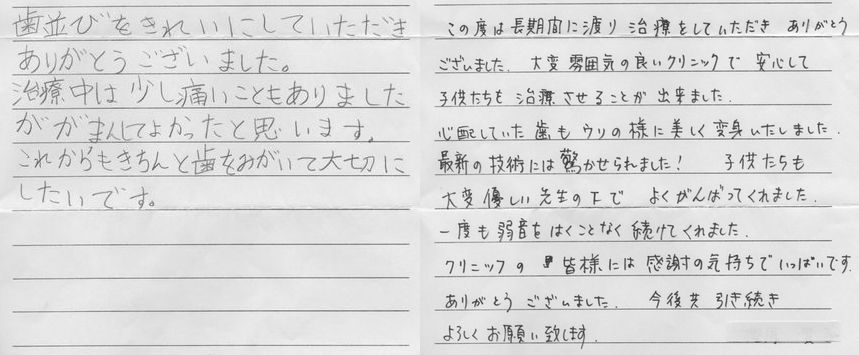 歯並びをきれいにしていただき
ありがとうございました。
治療中は少し痛いこともありました
ががまんしてよかったと思います。
これからもきちんと歯をみがいて大切に
したいです。
この度は長期間に渡り 治療をしていただき ありがとう
ございました. 大変 雰囲気の良いクリニックで 安心して
子供たちを 治療させることが 出来ました.
心配していた 歯も ウソの様に美しく変身いたしました.
最新の技術には驚かせられました! 子供たちも
大変 優しい 先生の下で よくがんばってくれました.
一度も弱音をはくことなく続けてくれました.
クリニックの 皆様には 感謝の気持ちでいっぱいです.
ありがとう ございました. 今後共 引き続き
よろしくお願い致します.